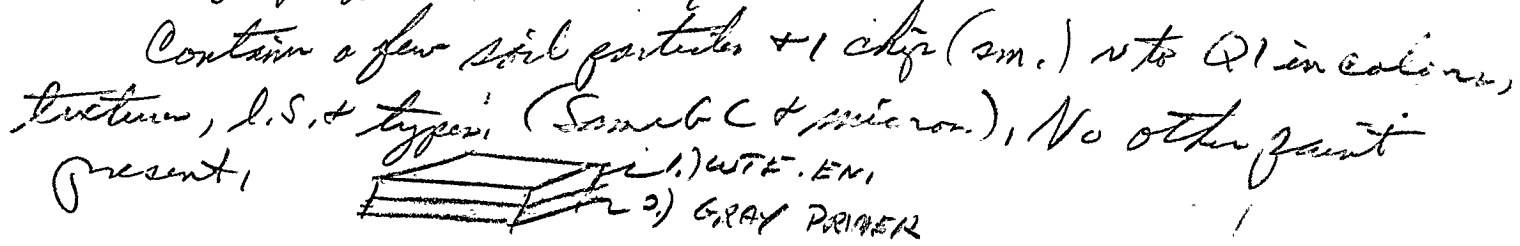 Contain a few soil particles + 1 chip (sm.) ~ to Q1 in colors,
textures, l.s. & types. (Same GC & micros.), No other paint
present.
1.) WTE. EN.
2.) GRAY PRIMER